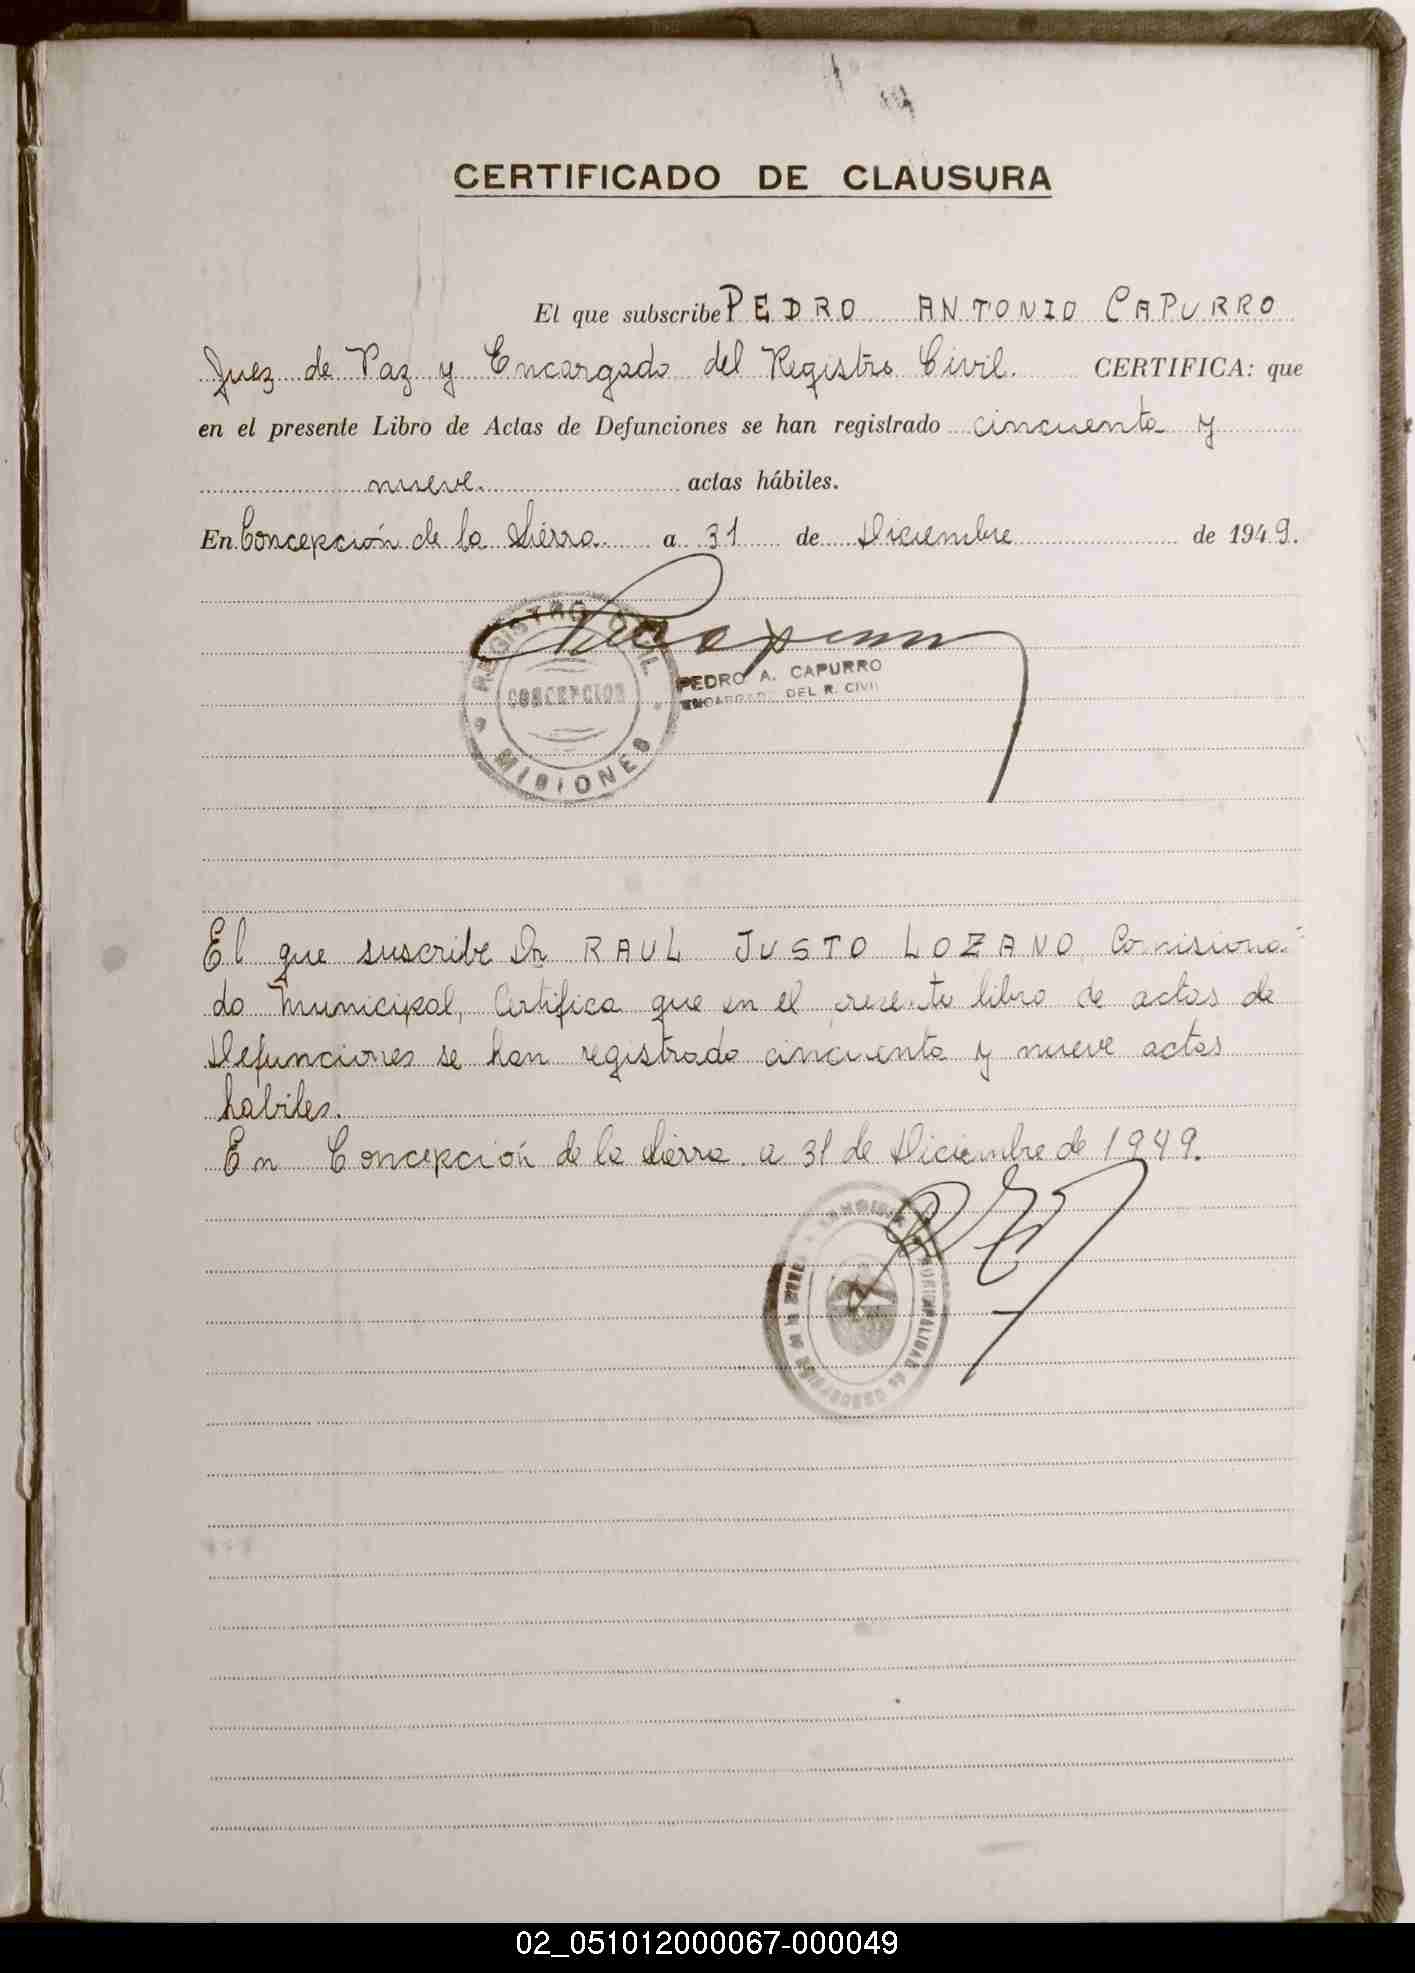 CERTIFICADO DE CLAUSURA
El que subscribe PEDRO ANTONIO CAPURRO
Juez de Paz y Encargado del Registro Civil. CERTIFICA: que
en el presente Libro de Actas de Defunciones se han registrado cincuenta y
nueve. actas hábiles.
En Concepción de la Sierra a 31 de Diciembre de 1949.
REGISTRO CIVIL
CONCEPCION
MISIONES
PEDRO A. CAPURRO
ENCARGADO DEL R. CIVIL
El que suscribe Dr RAUL JUSTO LOZANO Comisiona-
do Municipal, Certifica que en el presente libro de actas de
Defunciones se han registrado cincuenta y nueve actas
habiles.
En Concepción de la Sierra a 31 de Diciembre de 1949.
02_051012000067-000049